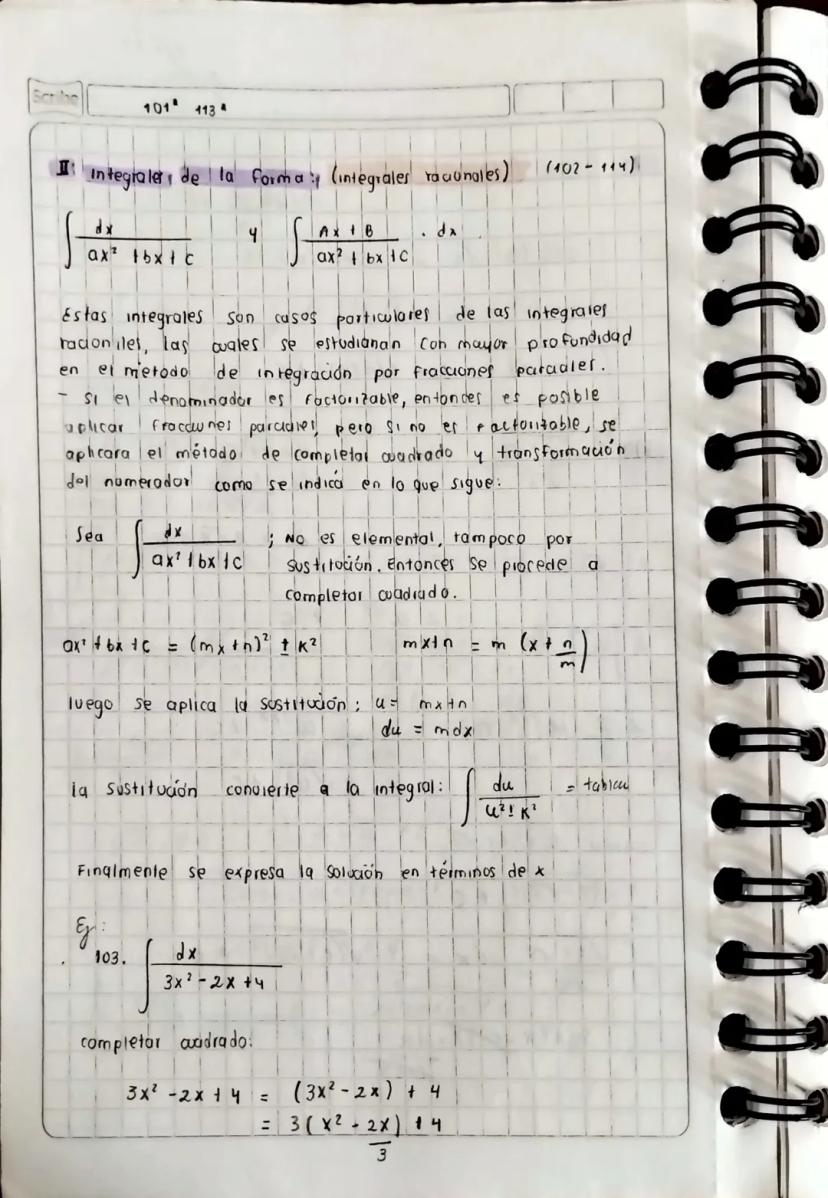 Scribe
101ª 113ª
II: integrales de la forma: (integrales racionales) (102 - 114)
∫ dx / (ax² + bx + c) y ∫ (Ax + B) / (ax² + bx + c) . dx
Estas integrales son casos particulares de las integrales
racionales, las cuales se estudiaran con mayor profundidad
en el método de integración por fracciones parciales.
- si el denominador es factorizable, entonces es posible
aplicar fracciones parciales, pero si no es factorizable, se
aplicara el método de completar cuadrado y transformación
del numerador como se indica en lo que sigue:
Sea ∫ dx / (ax² + bx + c) ; No es elemental, tampoco por
sustitución. Entonces se procede a
completar cuadrado.
ax² + bx + c = (mx + n)² ± K² mx+n = m (x + n/m)
luego se aplica la sustitución: u = mx+n
du = mdx
la sustitución convierte a la integral: ∫ du / (u² ± K²) = tablas
Finalmente se expresa la solución en términos de x
Ej:
. 103. ∫ dx / (3x² - 2x + 4)
completar cuadrado:
3x² - 2x + 4 = (3x² - 2x) + 4
= 3(x² - 2x/3) + 4